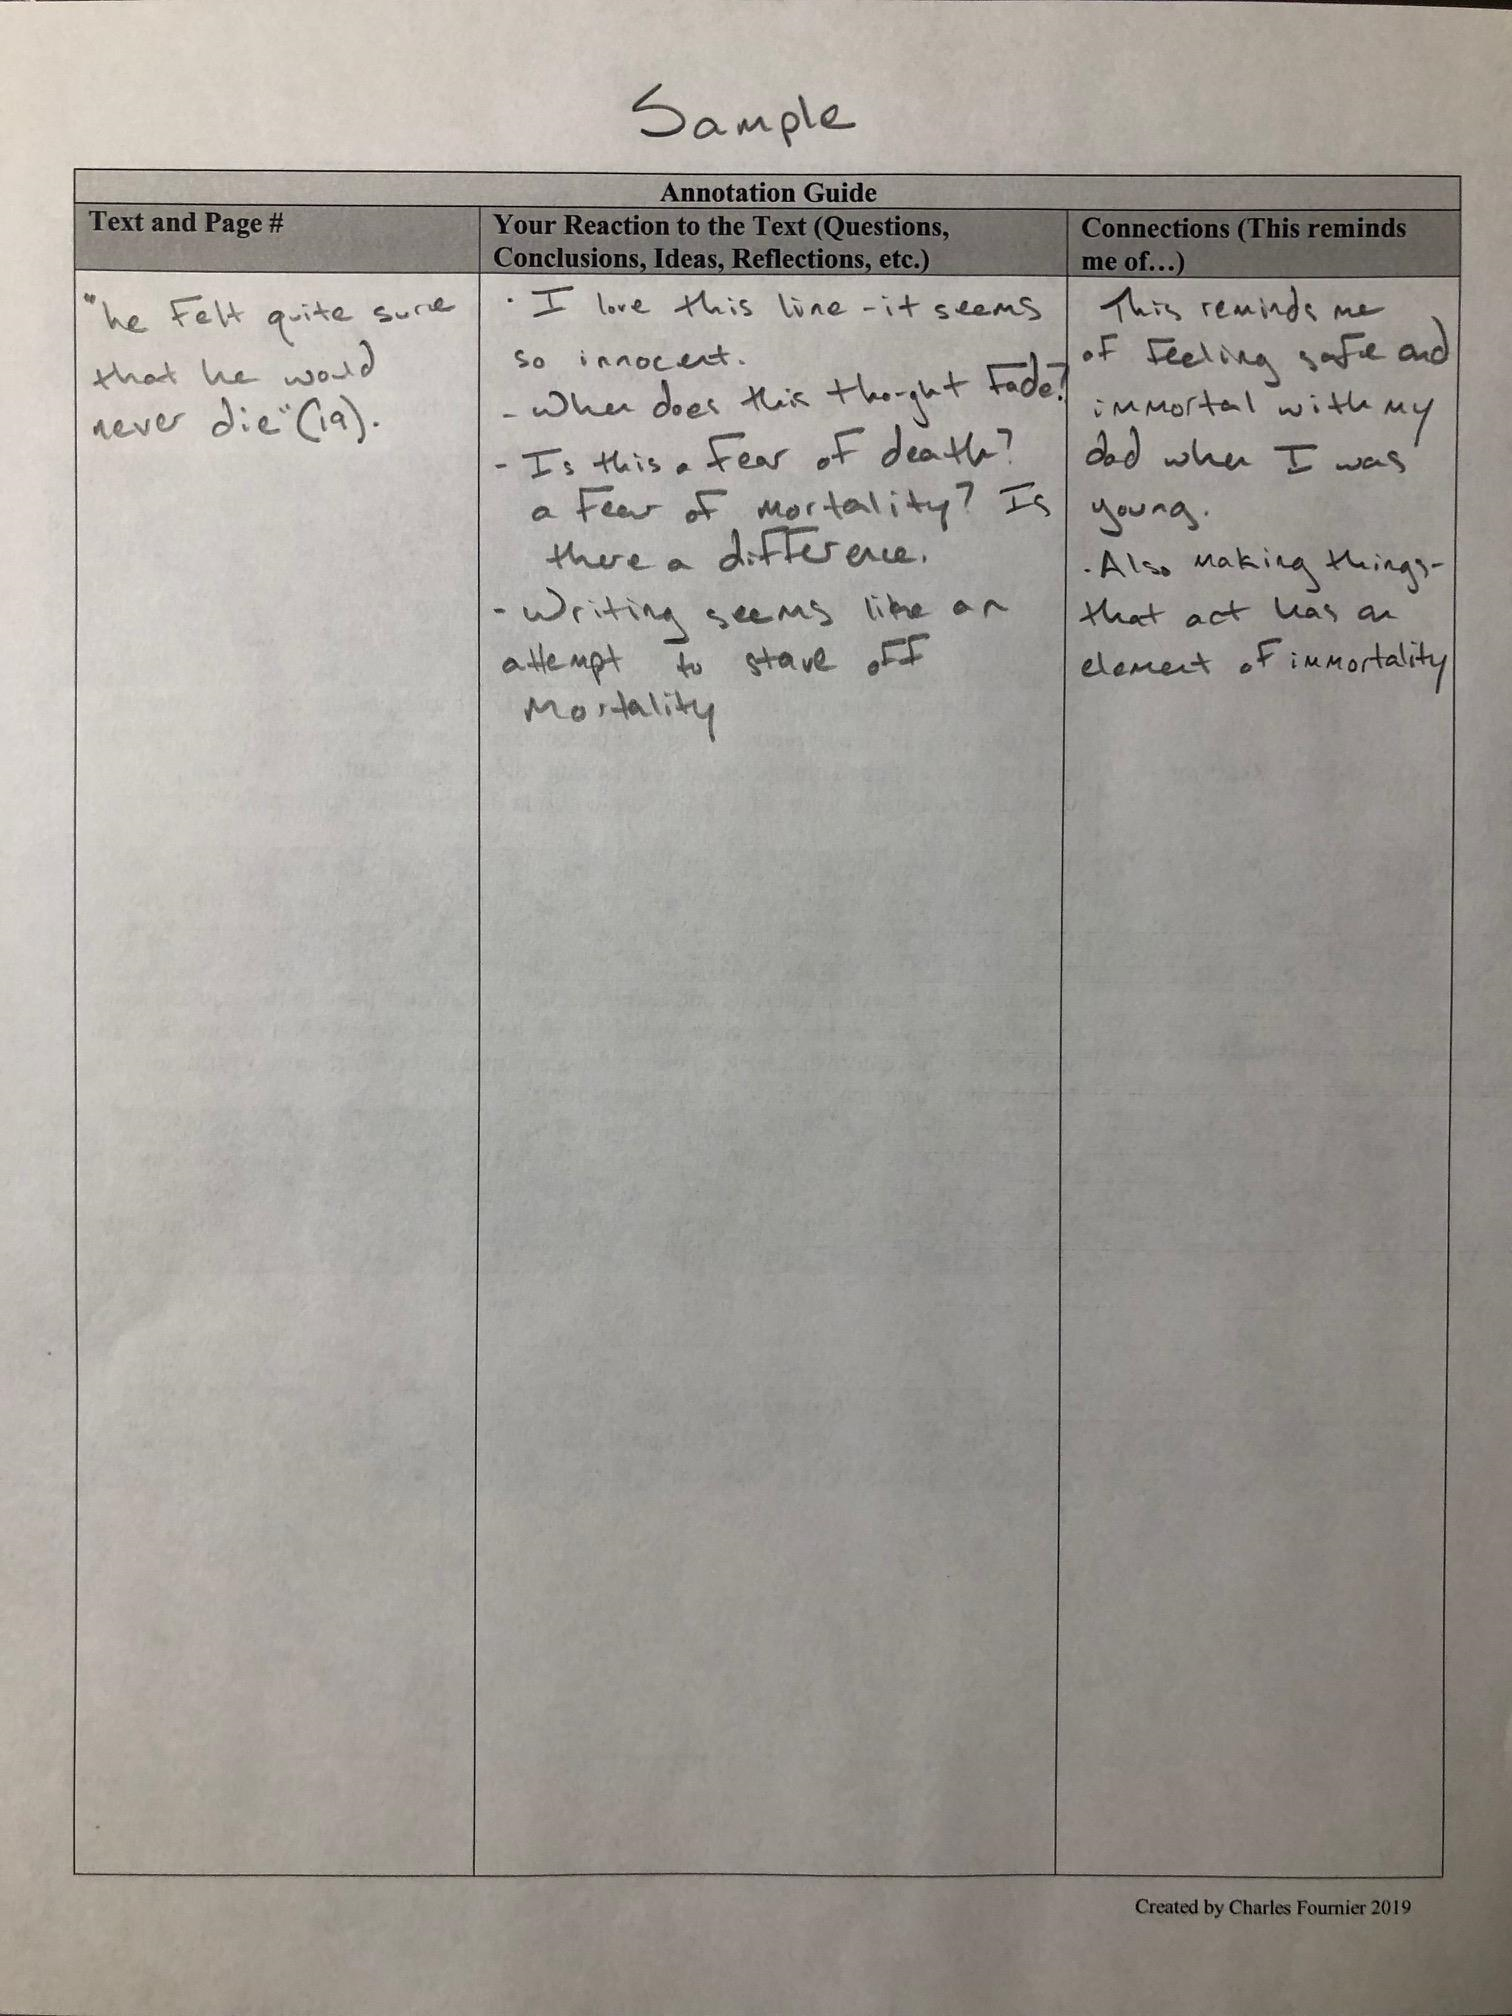 Sample
Annotation Guide
Text and Page #
Your Reaction to the Text (Questions,
Conclusions, Ideas, Reflections, etc.)
Connections (This reminds
me of...)
"he felt quite sure
that he would
never die" (19).
· I love this line - it seems
so innocent.
- When does this thought fade?
- Is this a fear of death?
a fear of mortality? Is
there a difference.
- Writing seems like an
attempt to stave off
mortality
This reminds me
of feeling safe and
immortal with my
dad when I was
young.
· Also making things-
that act has an
element of immortality
Created by Charles Fournier 2019